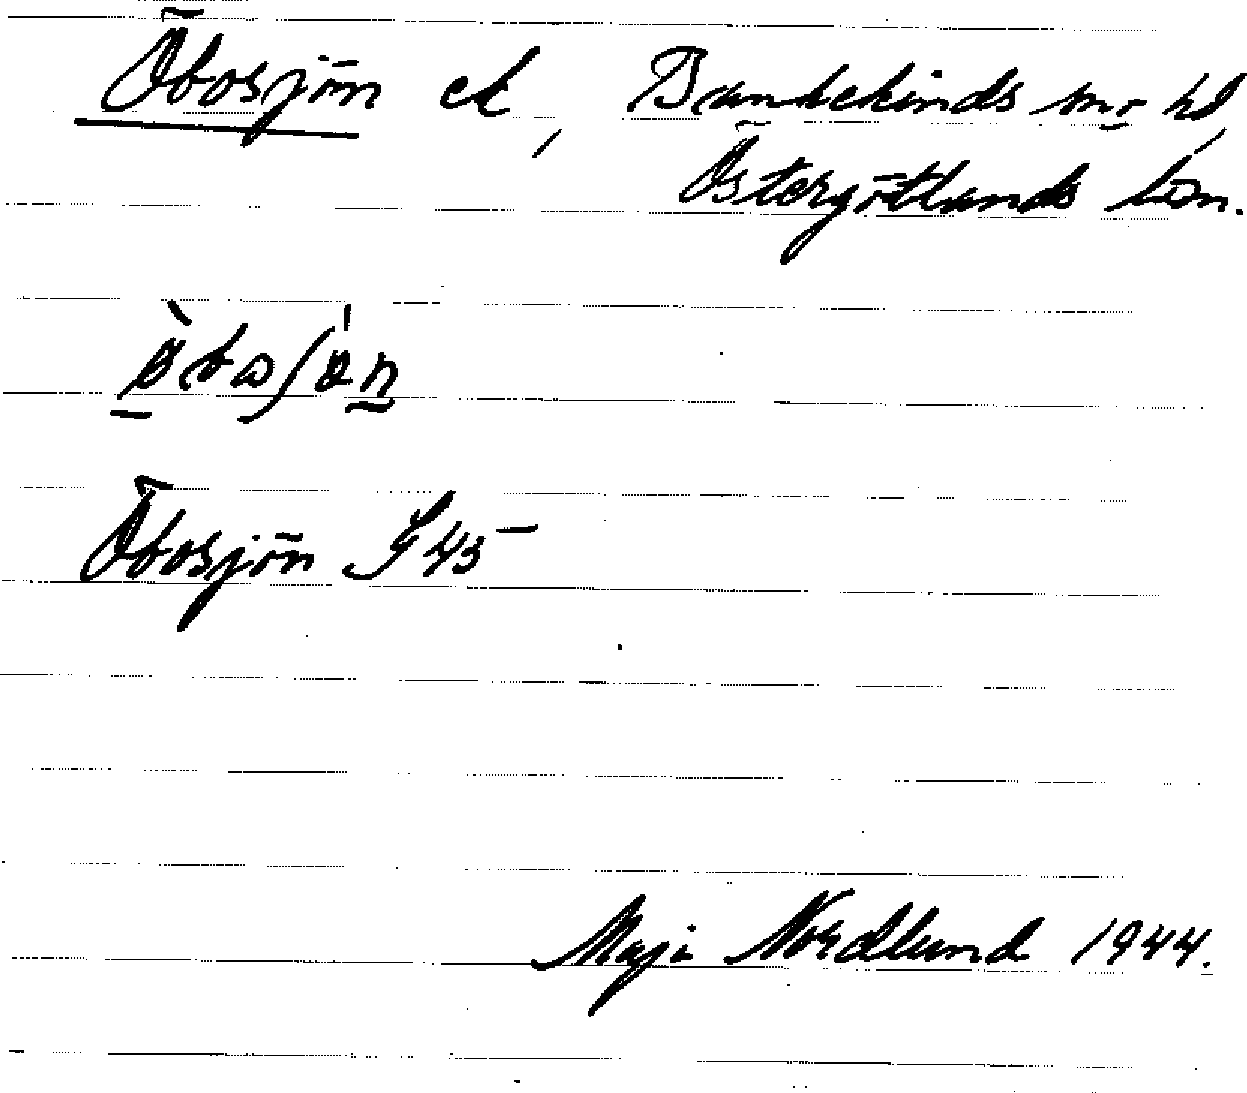 Öbosjön ek, Bankekinds snr hd
Östergötlands län.
Öbosjön S 45
Maja Nordlund 1944.